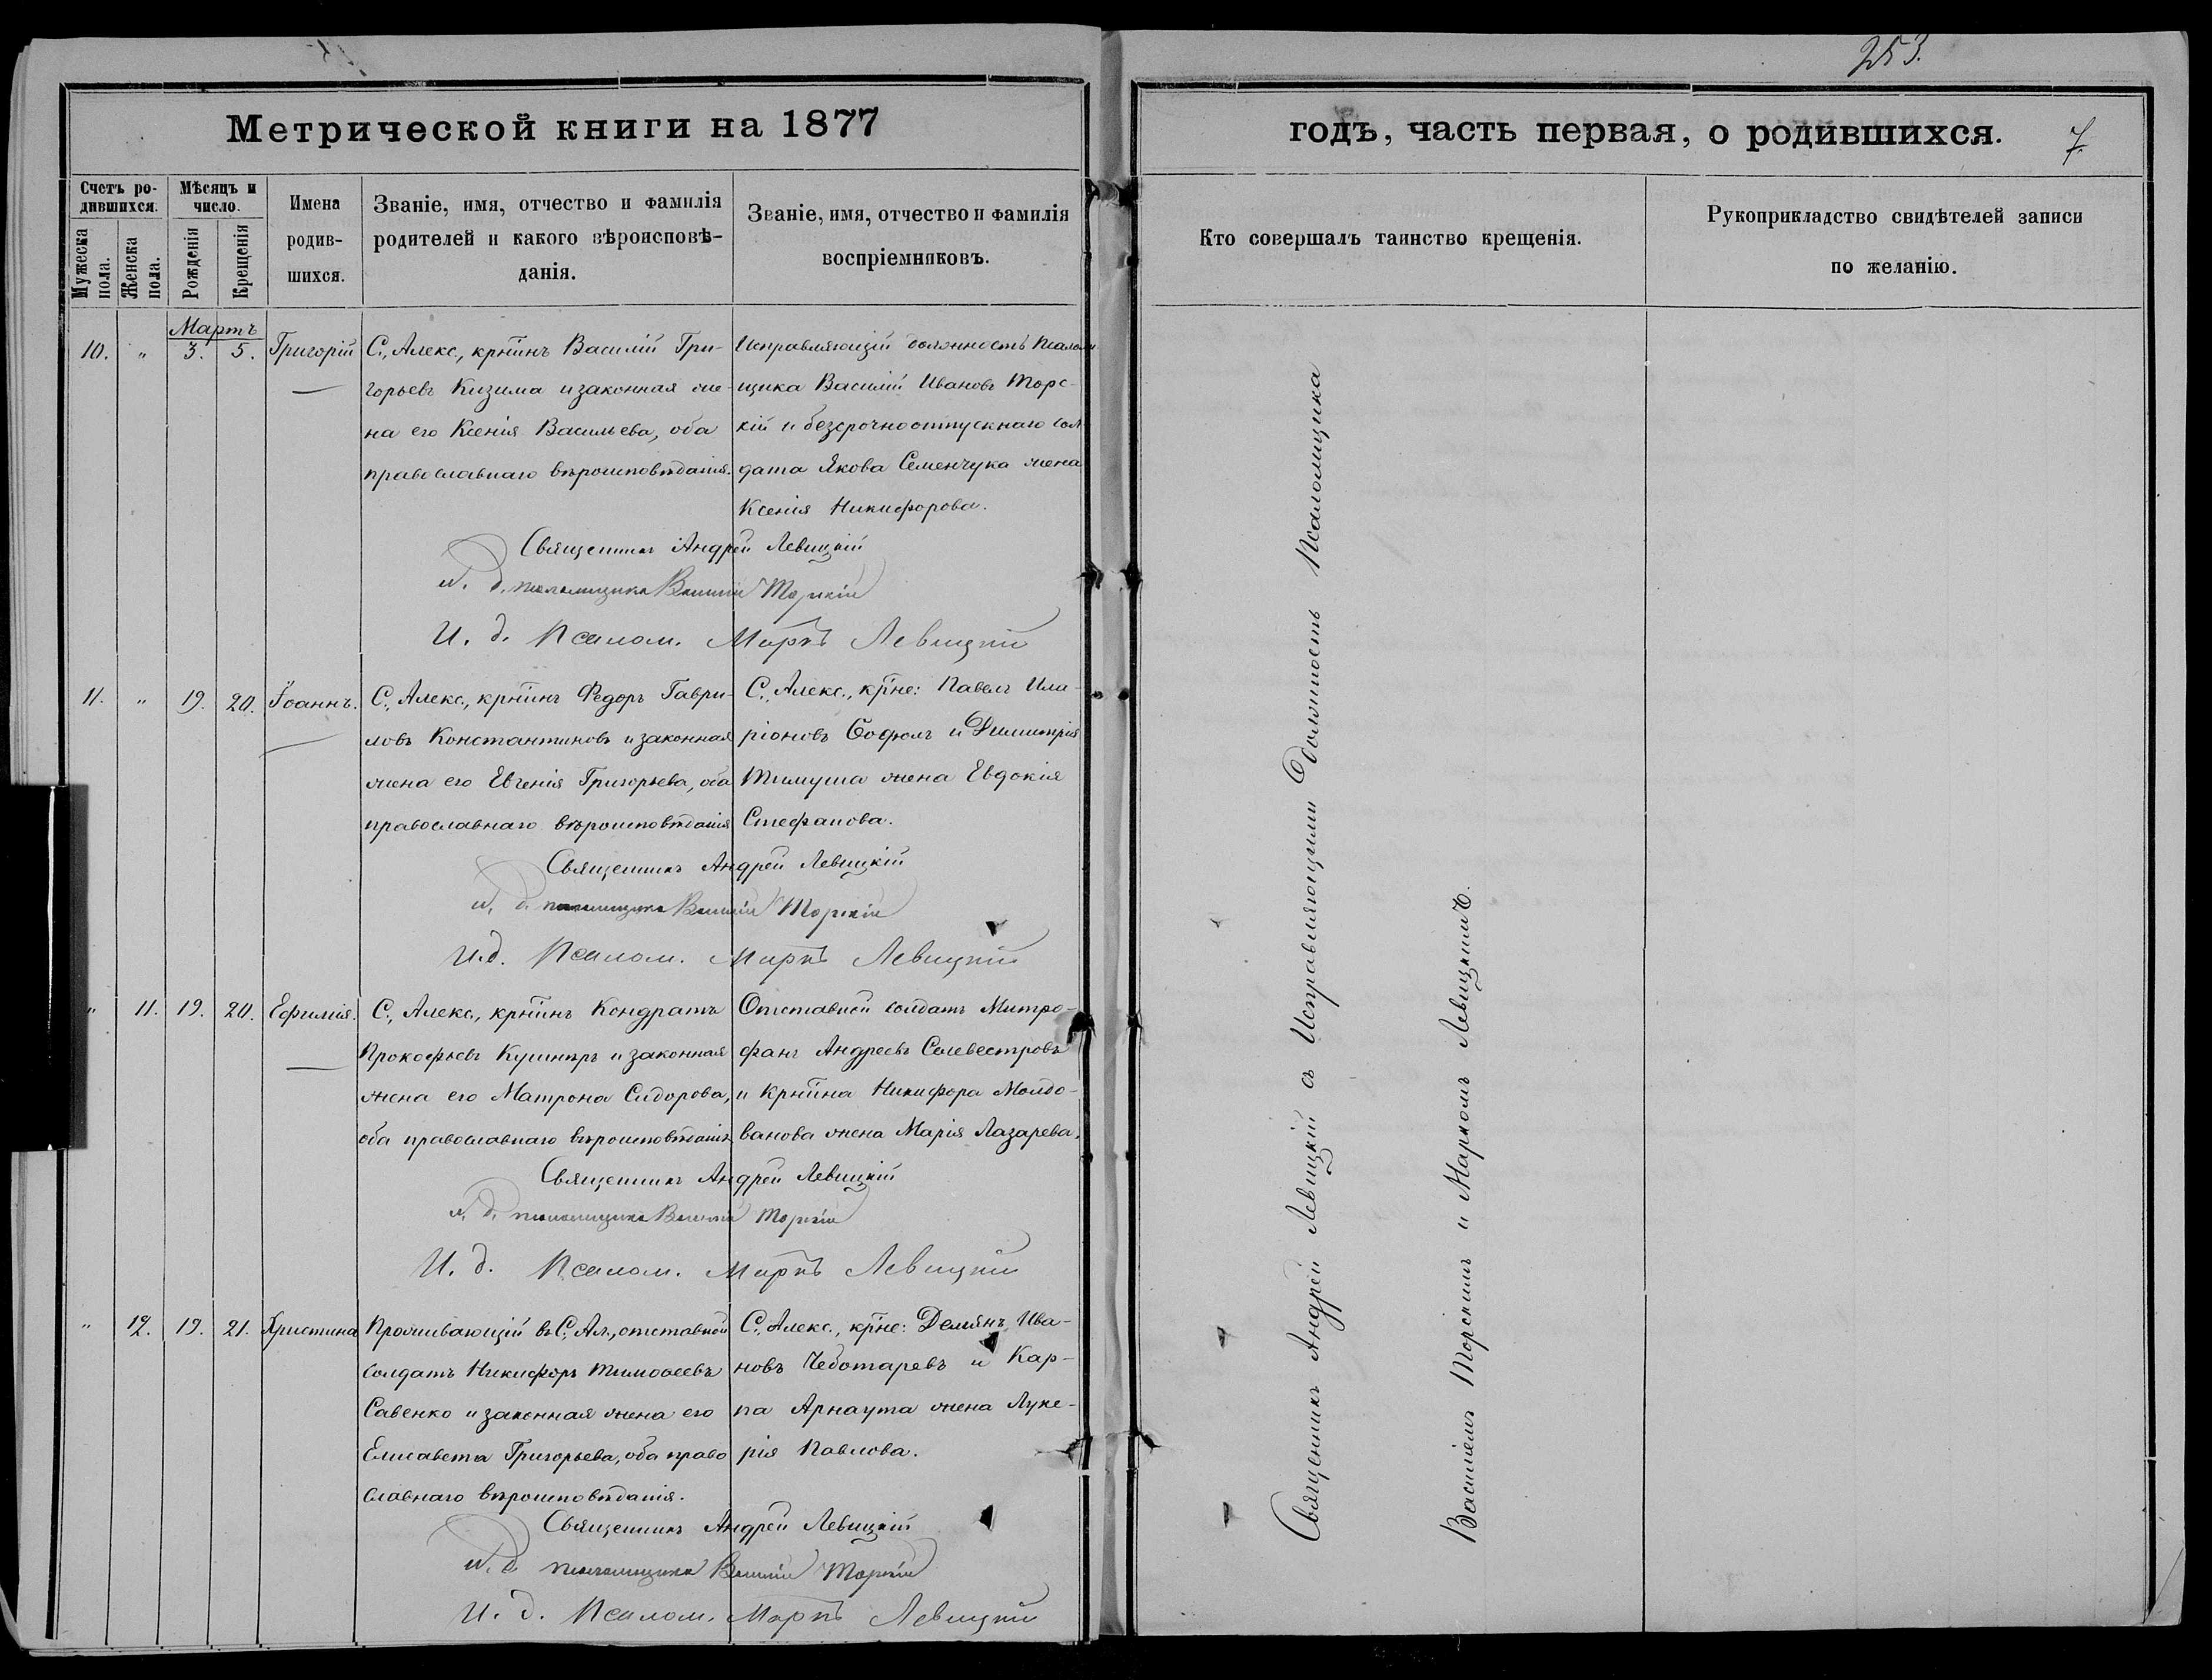 253.
Метрической книги на 1877
годъ, часть первая, о родившихся.
7.
Счетъ ро-
дившихся.
Мужеска
пола.
Женска
пола.
Мѣсяцъ и
число.
Рожденія
Крещенія
Имена
родив-
шихся.
Званіе, имя, отчество и фамилія
родителей и какого вѣроисповѣ-
данія.
Званіе, имя, отчество и фамилія
воспріемниковъ.
Кто совершалъ таинство крещенія.
Рукоприкладство свидѣтелей записи
по желанію.
Мартъ
10. " 3. 5. Григорій
С., Алекс., крнинъ Василій Гри-
горьевъ Кизима и законная же-
на его Ксенія Васильева, оба
православнаго вѣроисповѣданія.
Исправляющій должность Псалом
щика Василій Ивановъ Торс-
кій и безсрочноотпускнаго сол
дата Якова Семенчука жена
Ксенія Никифорова.
Священникъ Андрей Левицкій
и. д. псаломщика Василій Торскій
И. д. Псалом. Маркъ Левицкій
11. " 19. 20. Іоаннъ.
С., Алекс., крнинъ Федоръ Гаври-
ловъ Константиновъ и законная
жена его Евгенія Григорьева, оба
православнаго вѣроисповѣданія
С., Алекс., крне: Павелъ Ила-
ріоновъ и Димитрія
Тимуша жена Евдокія
Стефанова.
Священникъ Андрей Левицкій
и. д. псаломщика Василій Торскій
И. д. Псалом. Маркъ Левицкій
" 11. 19. 20. Ефимія.
С., Алекс., крнинъ Кондратъ
Прокофьевъ Кушниръ и законная
жена его Матрона Сидорова,
оба православнаго вѣроисповѣданія
Отставной солдатъ Митро-
фанъ Андреевъ Селевестровъ
и Крнина Никифора Молдо-
ванова жена Марія Лазарева.
Священникъ Андрей Левицкій
и. д. псаломщика Василій Торскій
И. д. Псалом. Маркъ Левицкій
" 12. 19. 21. Христина
Проживающій въ С., Ал., отставной
солдатъ Никифоръ Тимоѳеевъ
Савенко и законная жена его
Елисавета Григорьева, оба право
славнаго вѣроисповѣданія.
С., Алекс., крне: Демянъ Ива-
новъ Чеботаревъ и Кар-
па Арнаута жена Луке-
рія Павлова.
Священникъ Андрей Левицкій
и. д. псаломщика Василій Торскій
И. д. Псалом. Маркъ Левицкій
Священникъ Андрей Левицкій съ Исправляющими Должность Псаломщика
Василіемъ Торскимъ и Маркомъ Левицкимъ.